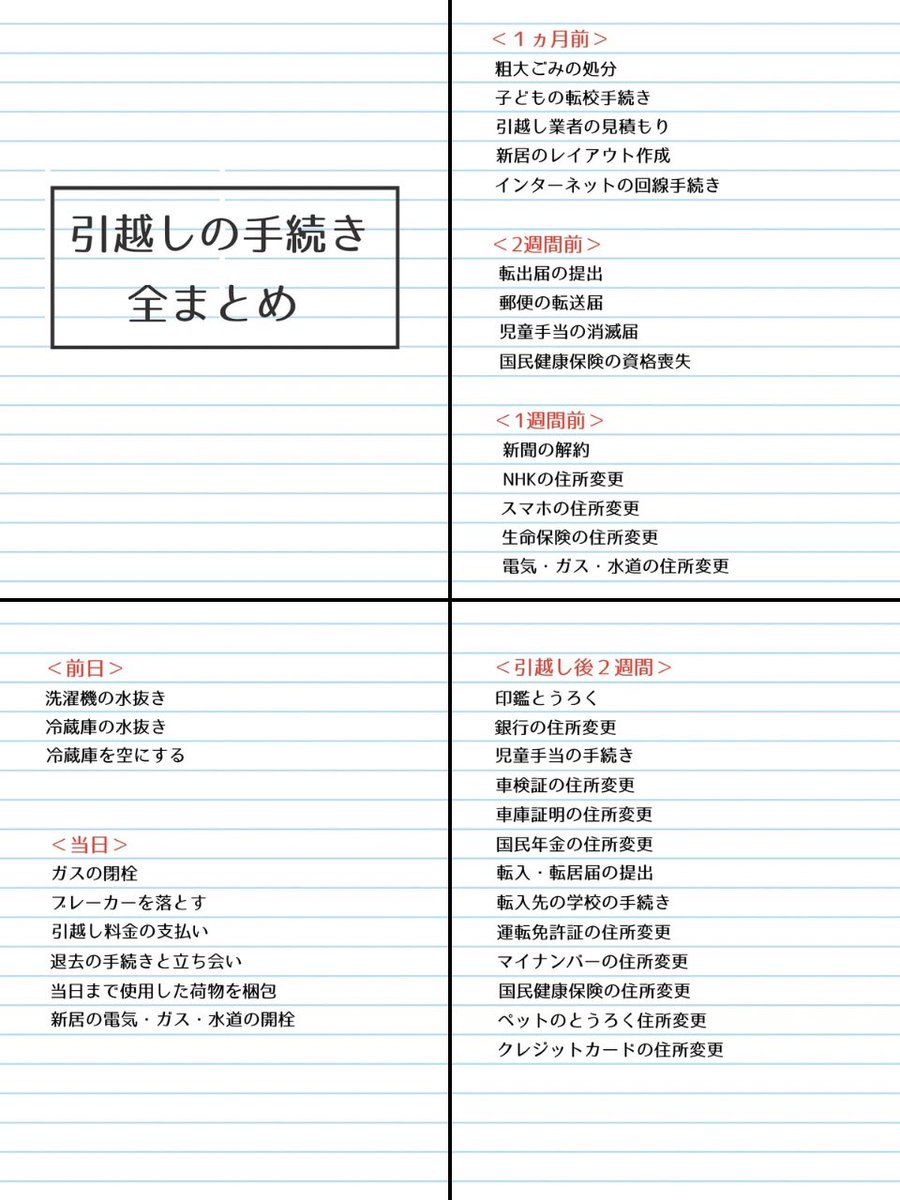 引越しの手続き
全まとめ
＜１ヵ月前＞
粗大ごみの処分
子どもの転校手続き
引越し業者の見積もり
新居のレイアウト作成
インターネットの回線手続き
＜2週間前＞
転出届の提出
郵便の転送届
児童手当の消滅届
国民健康保険の資格喪失
＜1週間前＞
新聞の解約
NHKの住所変更
スマホの住所変更
生命保険の住所変更
電気・ガス・水道の住所変更
＜前日＞
洗濯機の水抜き
冷蔵庫の水抜き
冷蔵庫を空にする
＜当日＞
ガスの閉栓
ブレーカーを落とす
引越し料金の支払い
退去の手続きと立ち会い
当日まで使用した荷物を梱包
新居の電気・ガス・水道の開栓
＜引越し後２週間＞
印鑑とうろく
銀行の住所変更
児童手当の手続き
車検証の住所変更
車庫証明の住所変更
国民年金の住所変更
転入・転居届の提出
転入先の学校の手続き
運転免許証の住所変更
マイナンバーの住所変更
国民健康保険の住所変更
ペットのとうろく住所変更
クレジットカードの住所変更